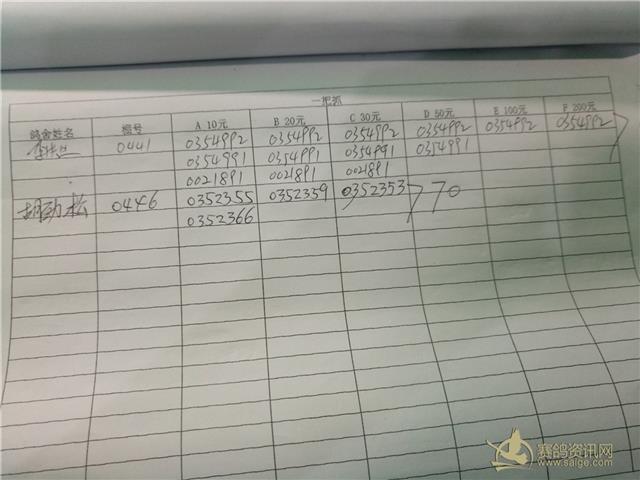 一把抓
鸽舍姓名 棚号 A 10元 B 20元 C 30元 D 50元 E 100元 F 200元
0441 0354992 0354992 0354992 0354992 0354992 0354992
0354991 0354991 0354991 0354991
0021891 0021891 0021891
胡劲松 0446 0352355 0352359 0352353 70
0352366
赛鸽资讯网
www.saige.com